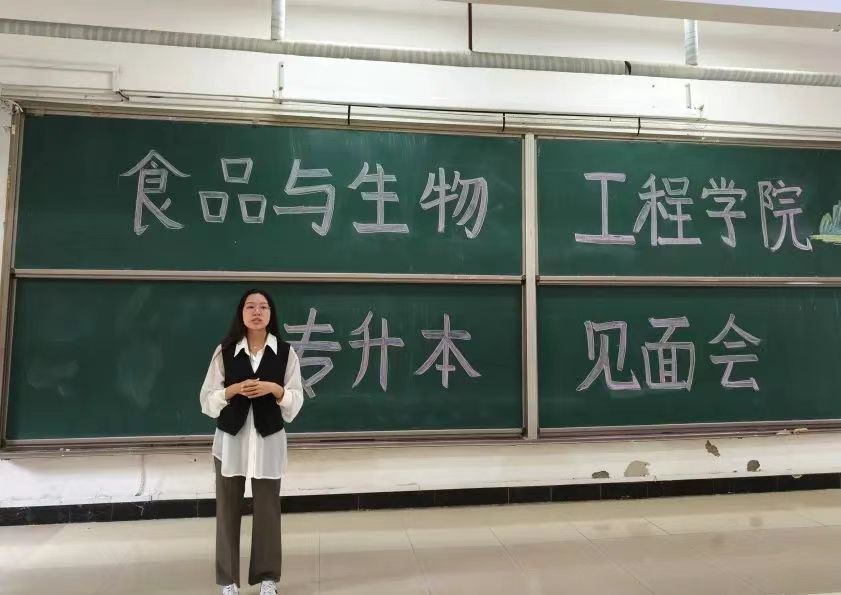 食品与生物 工程学院
专升本 见面会